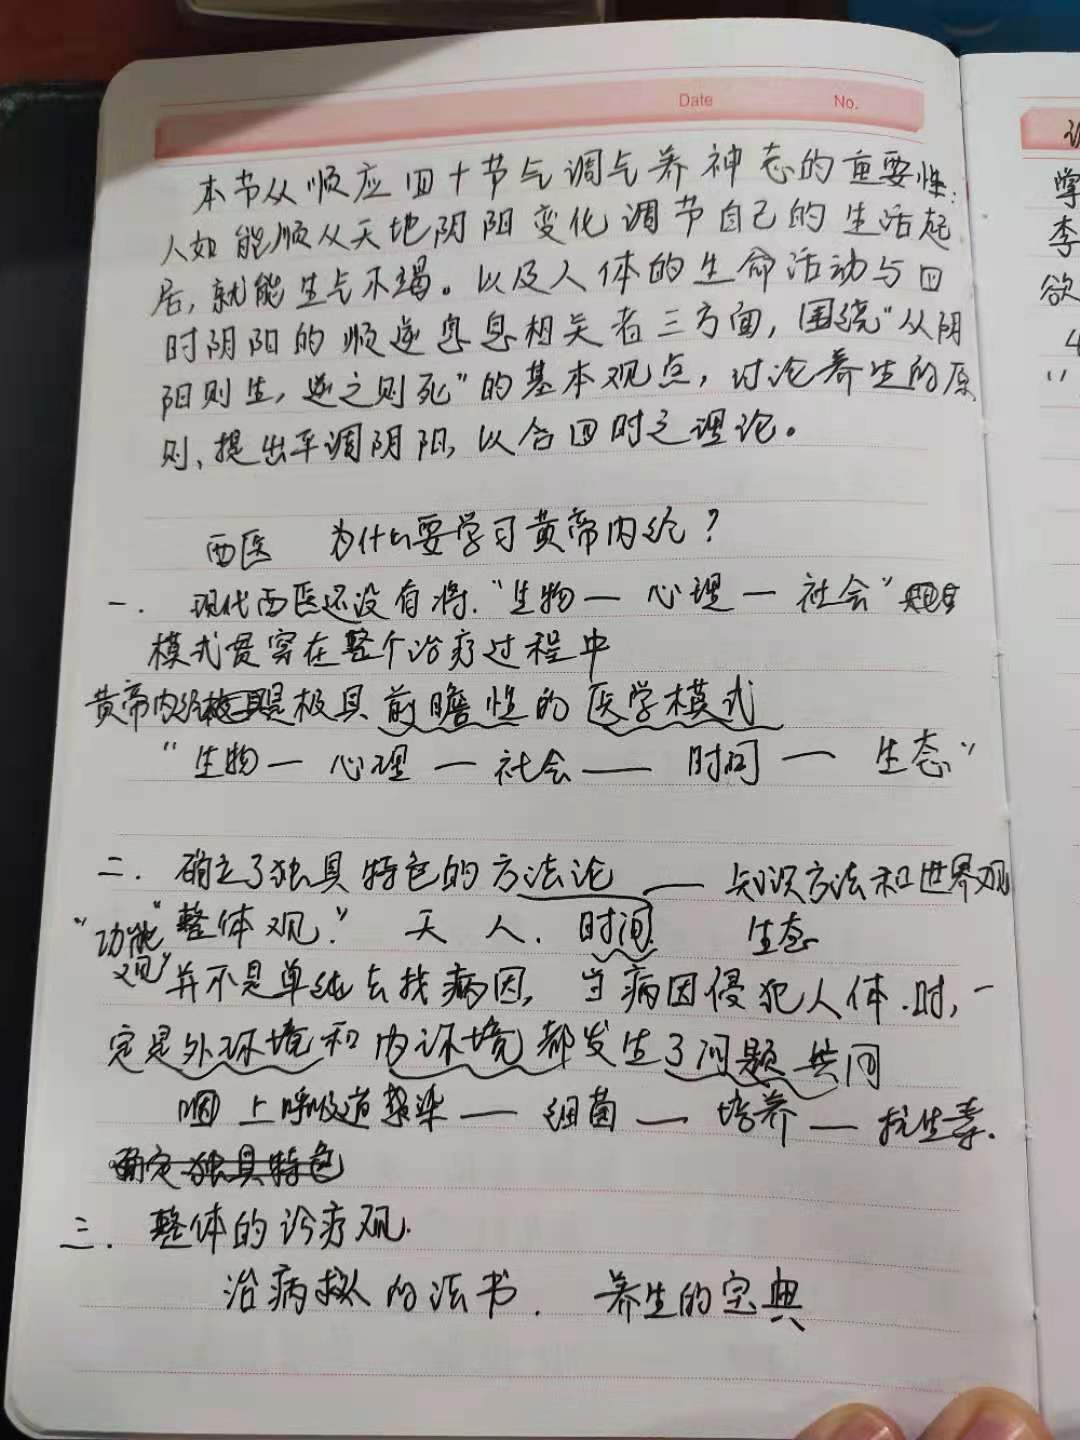 Date No.
本节从顺应四十节气调气养神志的重要性:
人如能顺从天地阴阳变化调节自己的生活起
居,就能生气不竭。以及人体的生命活动与四
时阴阳的顺逆息息相关者三方面,围绕"从阴
阳则生,逆之则死"的基本观点,讨论养生的原
则、提出平调阴阳,以合四时之理论。
西医 为什么要学习黄帝内经?
一. 现代西医还没有将."生物一 心理一 社会"
模式贯穿在整个治疗过程中
黄帝内经是极具前瞻性的医学模式
"生物一 心理 一 社会 —— 时间 一 生态"
二. 确立了独具特色的方法论 — 知识方法和世界观
"功能观" 整体观." 天 人. 时间. 生态
并不是单纯去找病因, 当病因侵犯人体.时,一
定是外环境和内环境都发生了问题 共同
咽 上呼吸道感染 — 细菌 — 培养 — 抗生素.
确定独具特色
三. 整体的诊疗观.
治病救人的法书. 养生的宝典
学
李
欲